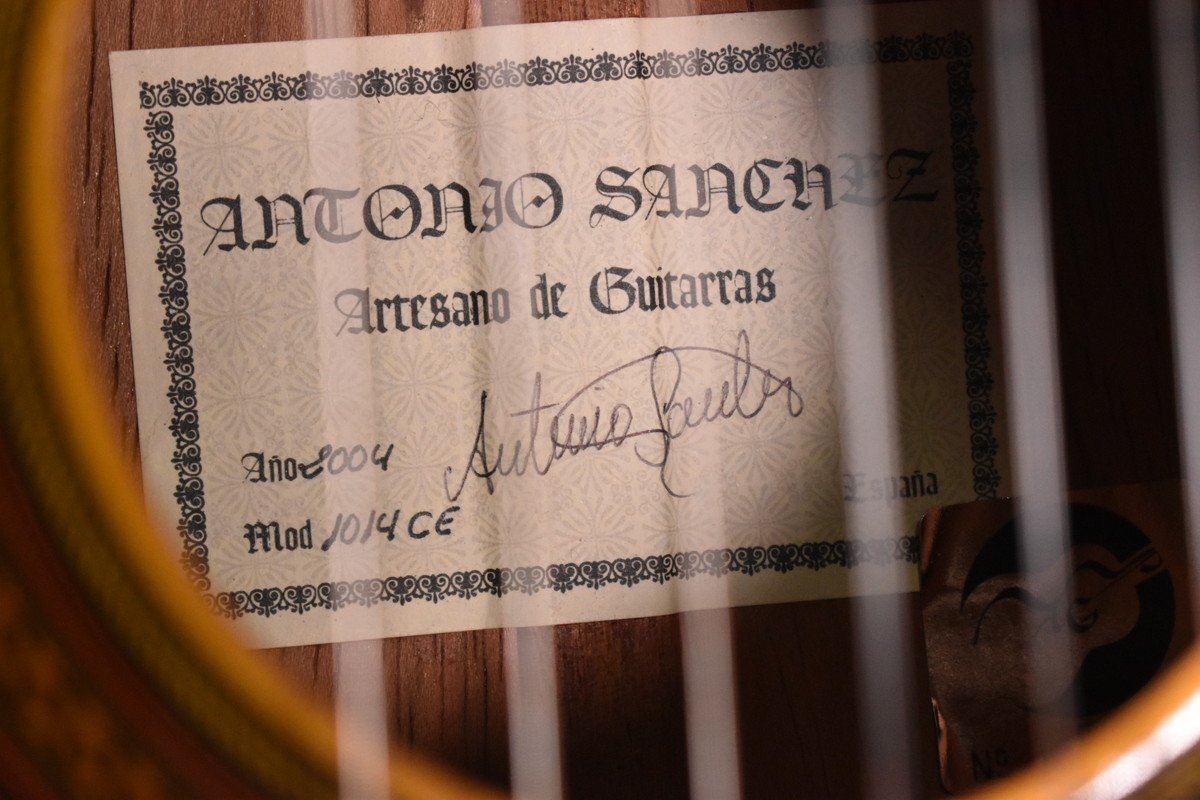 ANTONIO SANCHEZ
Artesano de Guitarras
Antonio Sanchez
Año 2004
España
Mod 1014 CE
Nº